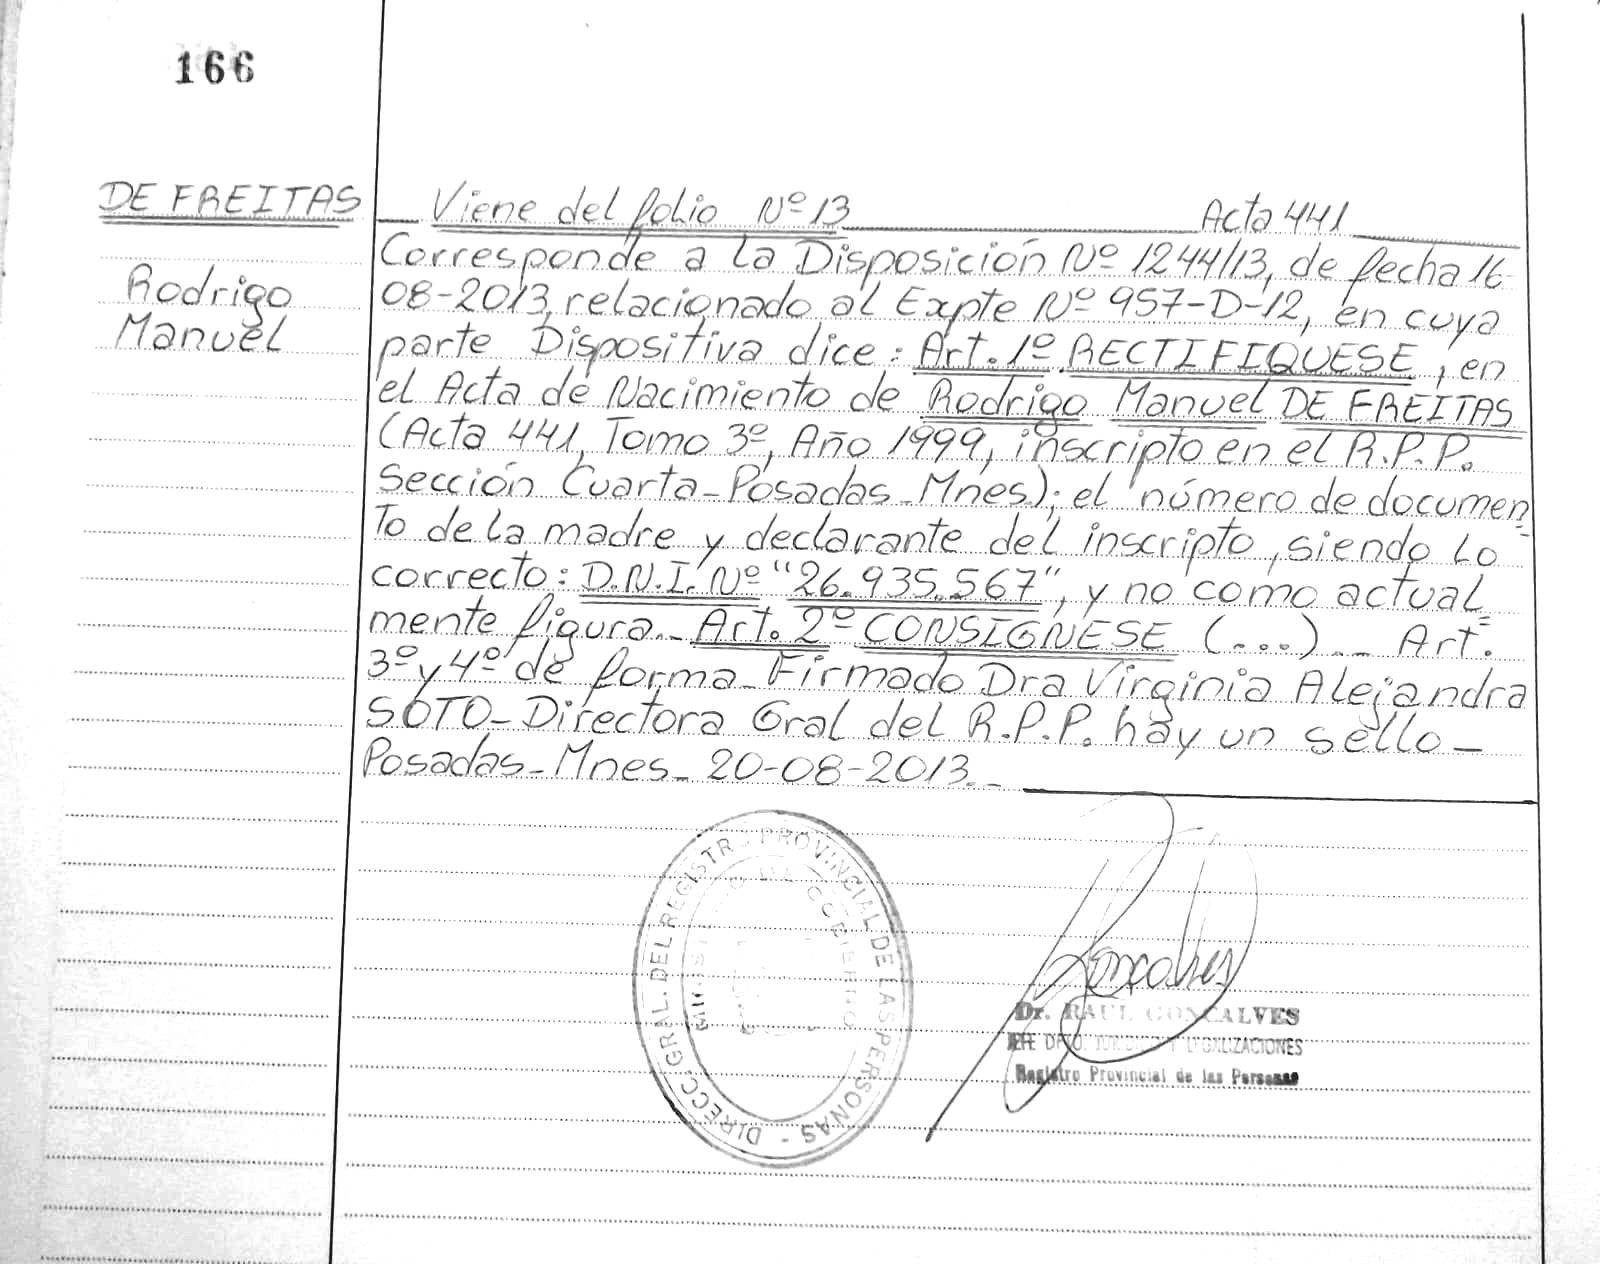 166
DE FREITAS
Rodrigo
Manuel
Viene del folio Nº 13 Acta 441
Corresponde a la Disposición Nº 1244/13, de fecha 16-
08-2013, relacionado al Expte Nº 957-D-12, en cuya
parte Dispositiva dice: Art. 1º RECTIFIQUESE, en
el Acta de Nacimiento de Rodrigo Manuel DE FREITAS
(Acta 441, Tomo 3º, Año 1999, inscripto en el R.P.P.
Sección Cuarta-Posadas-Mnes); el número de documen-
to de la madre y declarante del inscripto, siendo lo
correcto: D.N.I. Nº "26.935.567", y no como actual=
mente figura._ Art. 2º CONSIGNESE (...)_ Art.
3º y 4º de forma_ Firmado Dra Virginia Alejandra
SOTO_ Directora Gral del R.P.P. hay un sello_
Posadas_Mnes_ 20-08-2013._
DIRECC. GRAL. DEL REGISTRO PROVINCIAL DE LAS PERSONAS -
MINISTERIO DE GOBIERNO
Goncalves
Dr. RAUL GONCALVES
JEFE DPTO. JURIDICO Y LEGALIZACIONES
Registro Provincial de las Personas